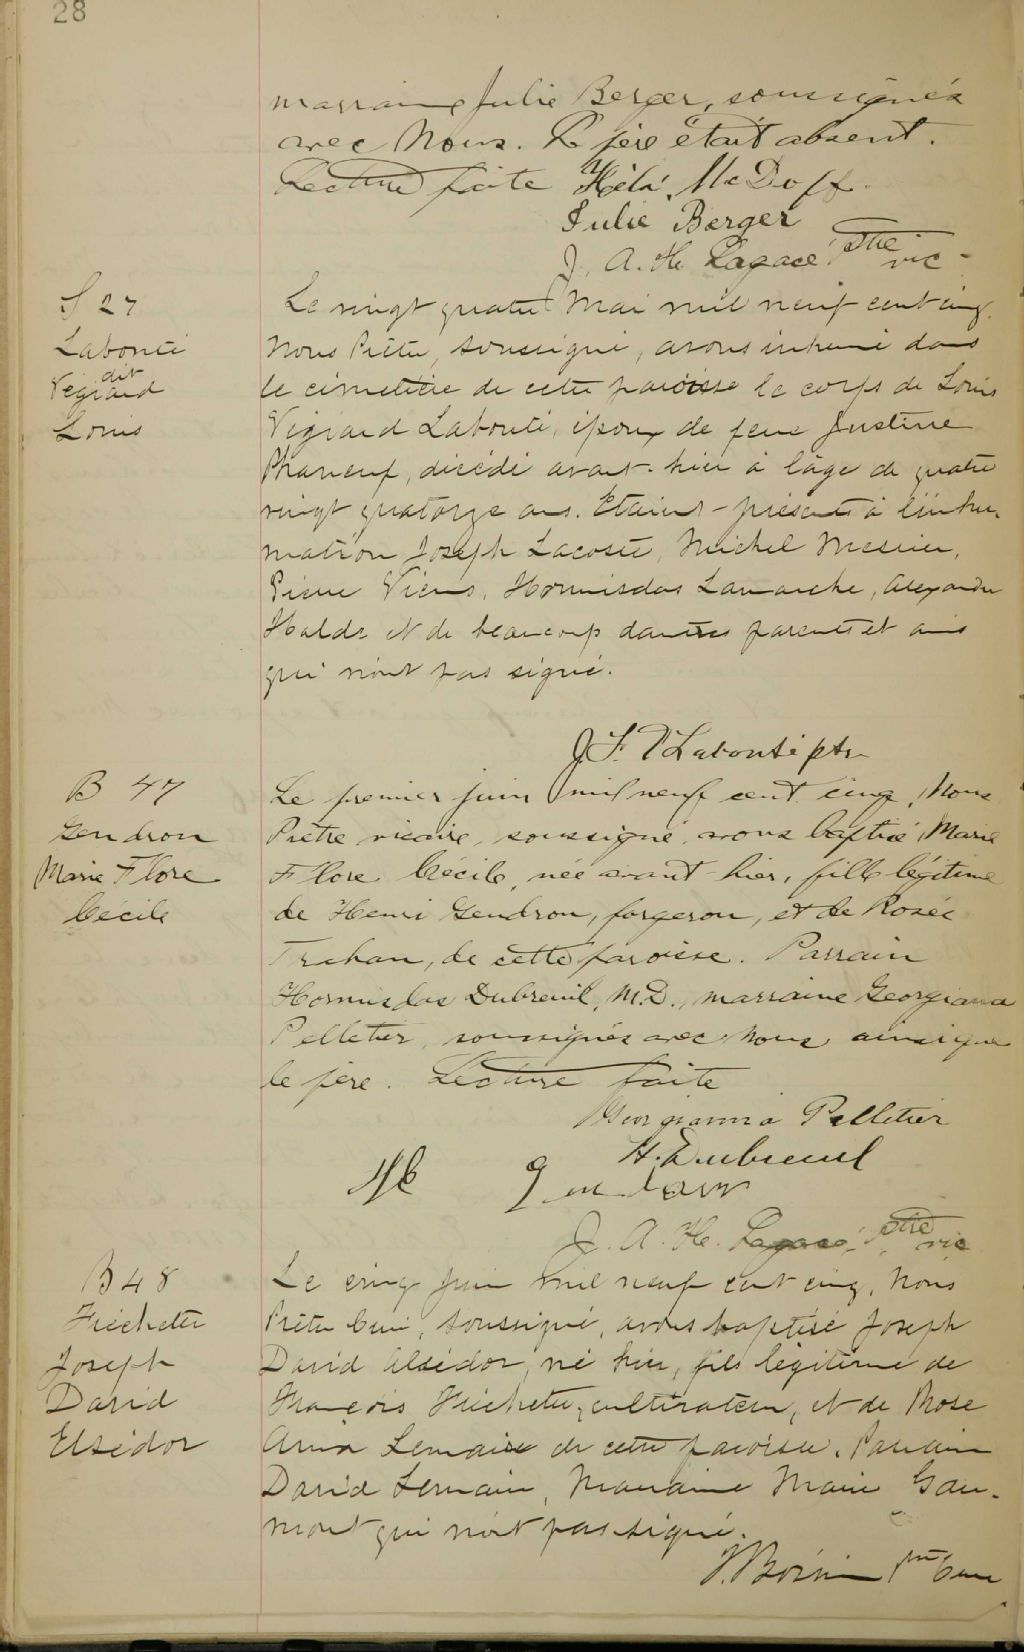 28
marraine Julie Berger, soussignés
avec Nous. Le père était absent.
Lecture faite Hélà. McDoff.
Julie Berger
J. A. H. Lagacé ptre vic
S 27
Labonté
dit
Végiard
Louis
Le vingt quatre Mai mil neuf cent cinq,
Nous Prêtre, soussigné, avons inhumé dans
le cimetière de cette paroisse le corps de Louis
Vegiard Labonté, époux de feue Justine
Phaneuf, décédé avant-hier à l'âge de quatre
vingt quatorze ans. Etaient présents à l'inhu-
mation Joseph Lacoste, Michel Messier,
Pierre Viens, Hormisdas Lamarche, Alexandre
Halde et de beaucoup d'autres parents et amis
qui n'ont pas signé.
J. F. V Labonté ptr
B 47
Gendron
Marie Flore
Cécile
Le premier juin mil neuf cent cinq, Nous
Prêtre vicaire, soussigné, avons baptisé, Marie
Flore Cécile, née avant-hier, fille légitime
de Henri Gendron, forgeron, et de Rosée
Trahan, de cette paroisse. Parrain
Hormisdas Dubreuil, M.D., marraine Georgiana
Pelletier, soussignés avec Nous, ainsi que
le père. Lecture faite
Georgianna Pelletier
H. Dubreuil
J. A. H. Lagacé, ptre vic
B 48
Fréchette
Joseph
David
Elsédor
Le cinq Juin mil neuf cent cinq, Nous
Prêtre Curé, soussigné, avons baptisé Joseph
David Alsédor, né hier, fils légitime de
François Fréchette, cultivateur, et de Rose
Anna Lemaire de cette paroisse. Parrain
David Lemaire, Marraine Marie Gau-
mont qui n'ont pas signé.
ptre Curé